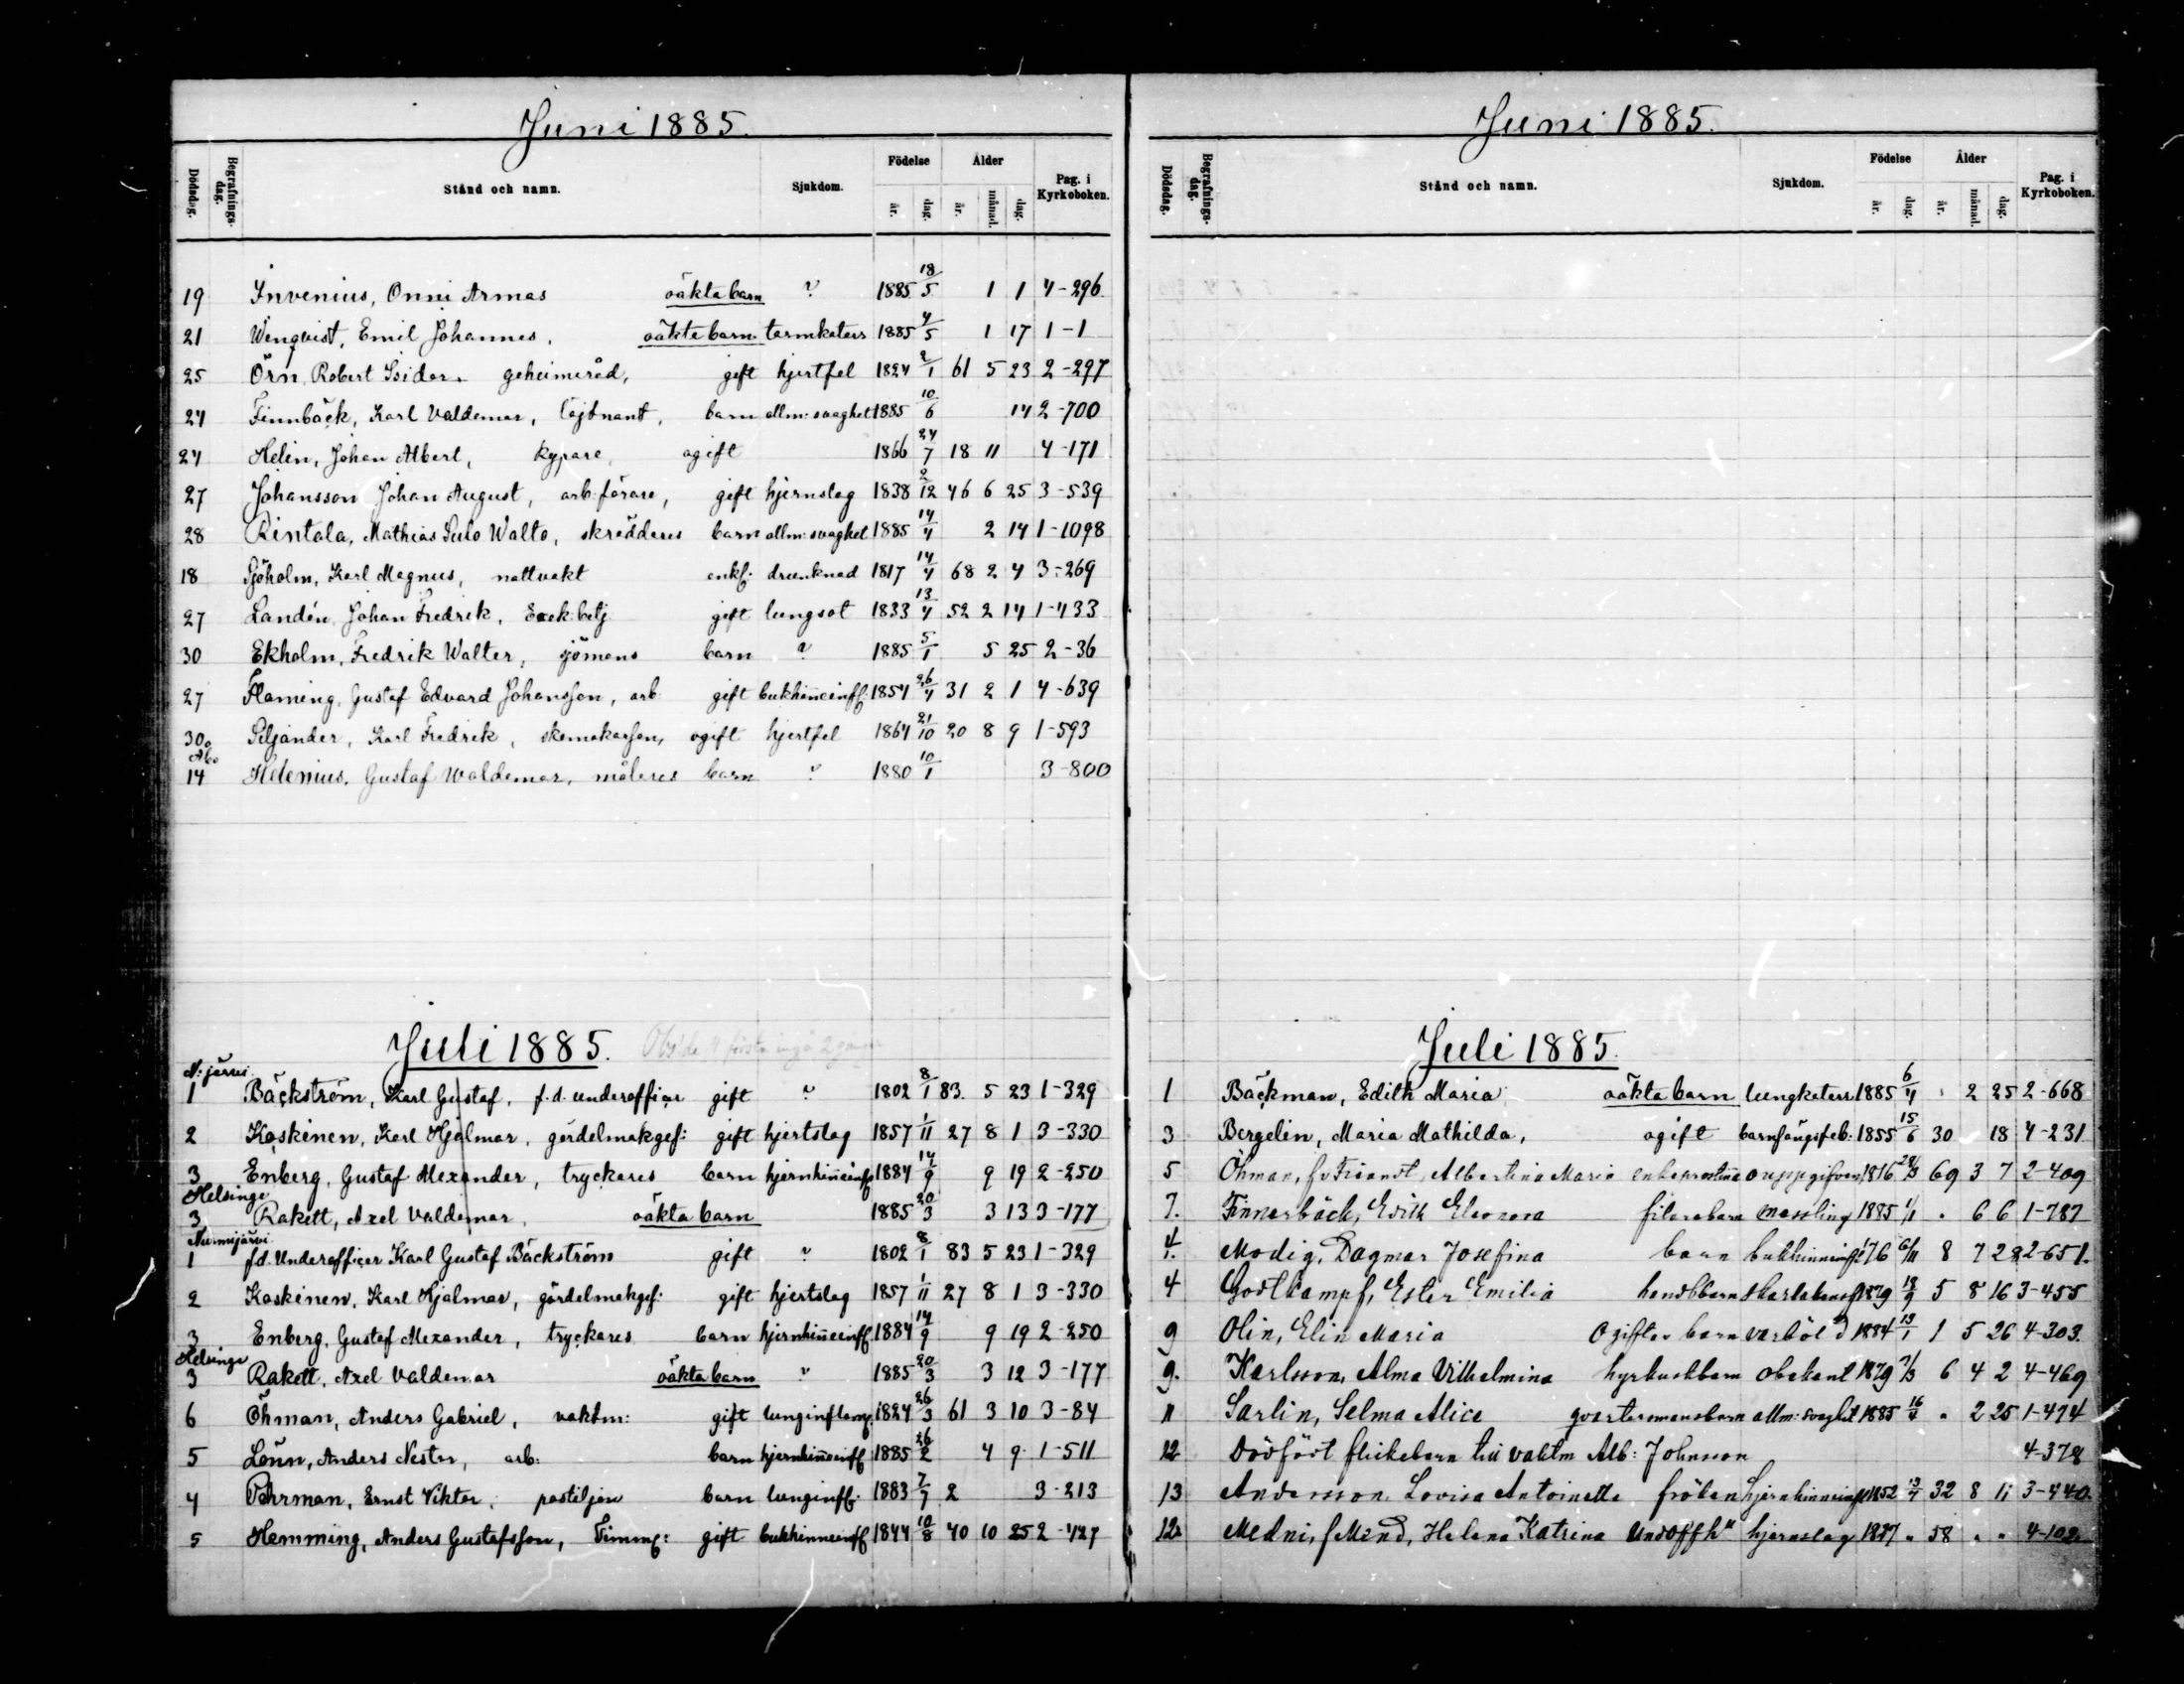 Juni 1885.
Dödsdag. Begrafnings-dag. Stånd och namn. Sjukdom. Födelse år. dag. Ålder år. månad. dag. Pag. i Kyrkoboken.
19 Invenius, Onni Armas oäkta barn ? 1885 18/5 1 1 4-296
21 Wenqvist, Emil Johannes, oäkta barn tarmkatarr 1885 4/5 1 17 1-1
25 Örn, Robert Isidor. geheimeråd, gift hjertfel 1824 2/1 61 5 23 2-297
24 Finnbäck, Karl Valdemar, löjtnant, barn allm: svaghet 1885 10/6 14 2-700
24 Helin, Johan Albert, kypare, ogift 1866 24/7 18 11 4-171
27 Johansson Johan August, arb: förare, gift hjernslag 1838 2/12 46 6 25 3-539
28 Rintala, Mathias Sulo Walto, skrädderes barn allm: svaghet 1885 14/4 2 14 1-1098
18 Sjöholm, Karl Magnus, nattvakt enkl: drunknad 1817 14/4 68 2 4 3-269
27 Landén, Johan Fredrik, Exek: betj gift lungsot 1833 13/4 52 2 14 1-433
30 Ekholm, Fredrik Walter, sjömans barn ? 1885 5/1 5 25 2-36
27 Flaming, Gustaf Edvard Johansson, arb gift bukhinneinfl: 1854 26/4 31 2 1 4-639
30 Siljander, Karl Fredrik, skomakarson, ogift hjertfel 1864 21/10 20 8 9 1-593
Åbo
14 Helenius, Gustaf Waldemar, målares barn ? 1880 10/1 3-800
Juli 1885.
N: järvi
1 Bäckström, Karl Gustaf, f.d. underofficer gift ? 1802 8/1 83. 5 23 1-329
2 Koskinen, Karl Hjalmar, gördelmakgef: gift hjertslag 1857 1/11 27 8 1 3-330
3 Enberg, Gustaf Alexander, tryckares barn hjernhinneinfl 1884 14/9 9 19 2-250
Helsinge
3 Rakett, Axel Valdemar, oäkta barn 1885 20/3 3 13 3-177
Nurmijärvi
1 f.d. Underofficer Karl Gustaf Bäckström gift ? 1802 8/1 83 5 23 1-329
2 Koskinen, Karl Hjalmar, gördelmakgef: gift hjertslag 1857 1/11 27 8 1 3-330
3 Enberg, Gustaf Alexander, tryckares barn hjernhinneinfl 1884 14/9 9 19 2-250
Helsinge
3 Rakett, Axel Valdemar oäkta barn ? 1885 20/3 3 12 3-177
6 Öhman, Anders Gabriel, vaktm: gift lunginflam: 1824 26/3 61 3 10 3-84
5 Lönn, Anders Nestor, arb: barn hjernhinneinfl 1885 26/2 4 9 1-511
4 Pehrman, Ernst Viktor, postiljon barn lunginfl: 1883 7/7 2 3-213
5 Hemming, Anders Gustafsson, Timm: gift bukhinneinfl 1844 10/8 40 10 25 2-427
Juni 1885.
Dödsdag. Begrafnings-dag. Stånd och namn. Sjukdom. Födelse år. dag. Ålder år. månad. dag. Pag. i Kyrkoboken.
Juli 1885.
1 Bäckman, Edith Maria oäkta barn lungkatarr 1885 6/4 2 25 2-668
3 Bergelin, Maria Mathilda, ogift barnfängsfeb: 1855 15/6 30 18 4-231
5 Öhman, f. Friandt, Albertina Maria ouppgifven 1816 28/3 69 3 7 2-409
7. Finnerbäck, Edith Eleonora filarebarn messling 1885 1/1 6 6 1-787
4. Modig, Dagmar Josefina barn bukhinneinfl 176 6/11 8 7 28 2-651.
4 Godtkampf, Ester Emilia 1879 18/9 5 8 16 3-455
9 Olin, Elin Maria Ogiftes barn varböld 1884 13/1 1 5 26 4-303.
9. Karlsson, Alma Vilhelmina hyrkuskbarn obekant 1879 7/3 6 4 2 4-469
11 Sarlin, Selma Alice qvartersmansbarn allm: svaghet 1885 16/4 2 25 1-474
12 Dödfödt flickebarn till vaktm Alb: Johnsson 4-378
13 Andersson, Lovisa Antoinette fröken hjernhinneinfl 1852 32 8 11 3-440.
12. Medni, f Mend, Helena Katrina hjernslag 1827 58 4-102.